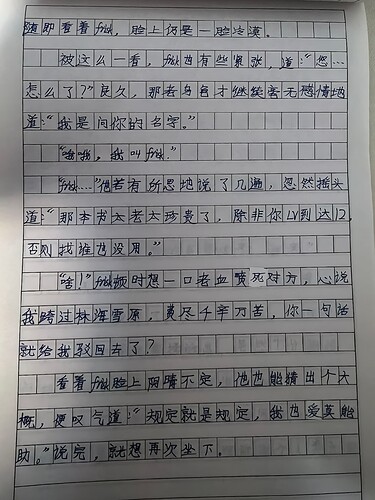 随即看看frisk，脸上仍是一脸冷漠。
被这么一看，frisk也有些紧张，道：“您…
怎么了？”良久，那老乌龟才继续毫无感情地
道：“我是问你的名字。”
“哦哦，我叫frisk.”
“frisk……”他若有所思地说了几遍，忽然摇头
道：“那本书太老太珍贵了，除非你LV到达12，
否则找谁也没用。”
“啥！”frisk顿时想一口老血喷死对方，心说
我跨过林海雪原，费尽千辛万苦，你一句话
就给我驳回去了？
看看frisk脸上阴晴不定，他也能猜出个大
概，便叹气道：“规定就是规定，我也爱莫能
助。”说完，就想再次坐下。